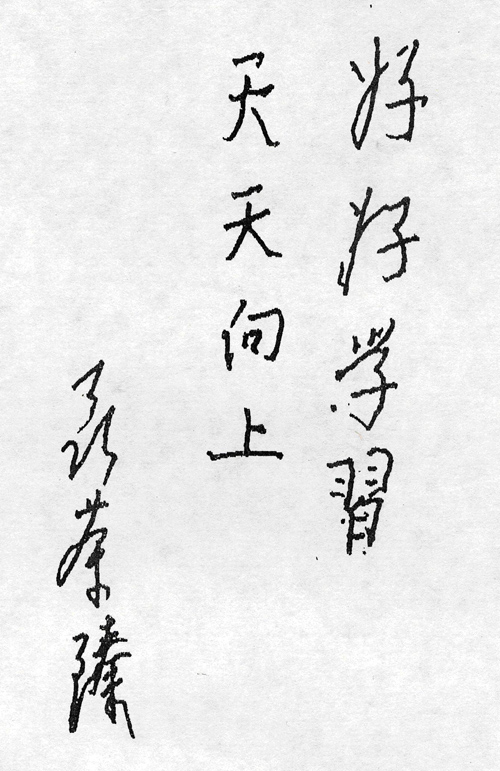 好好学習
天天向上
聂荣臻